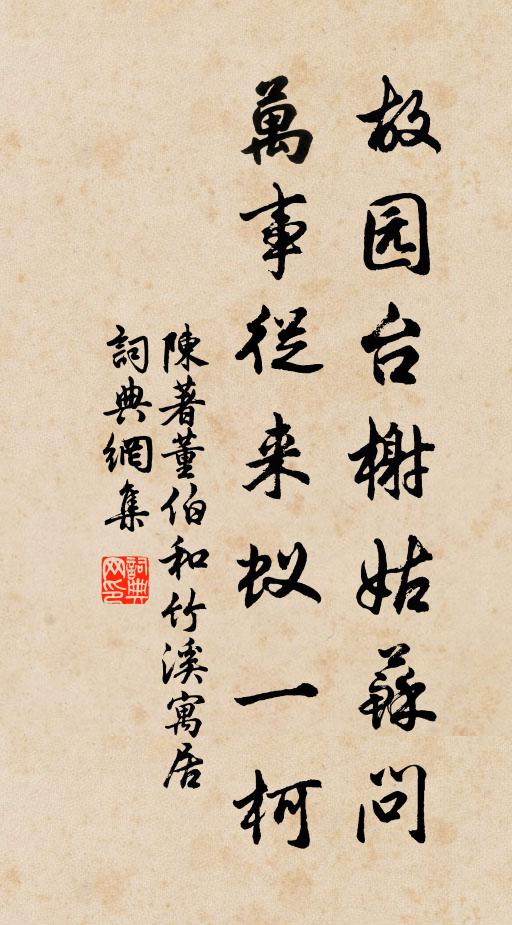 故园台榭姑蘇问
萬事從来蚁一柯
陳著董伯和竹溪寓居
詞典網集
詞典网印